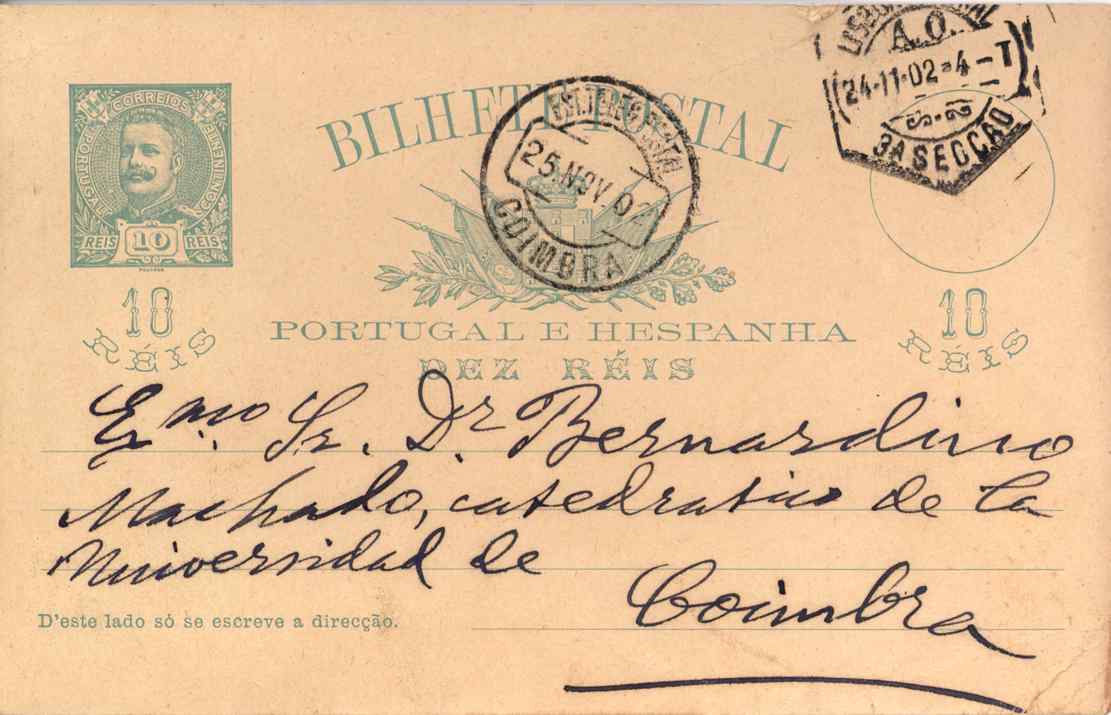 CORREIOS
PORTUGAL
CONTINENTE
REIS 10 REIS
BILHETE POSTAL
EST. TELEGRO POSTAL
25.NOV.02
COIMBRA
LISBOA CENTRAL
A.O.
24-11-02-4-T
3A SECÇÃO
10
RÉIS
PORTUGAL E HESPANHA
DEZ RÉIS
10
RÉIS
Exmo. Sr. Dr. Bernardino
Machado, catedratico de la
Universidad de
Coimbra
D'este lado só se escreve a direcção.